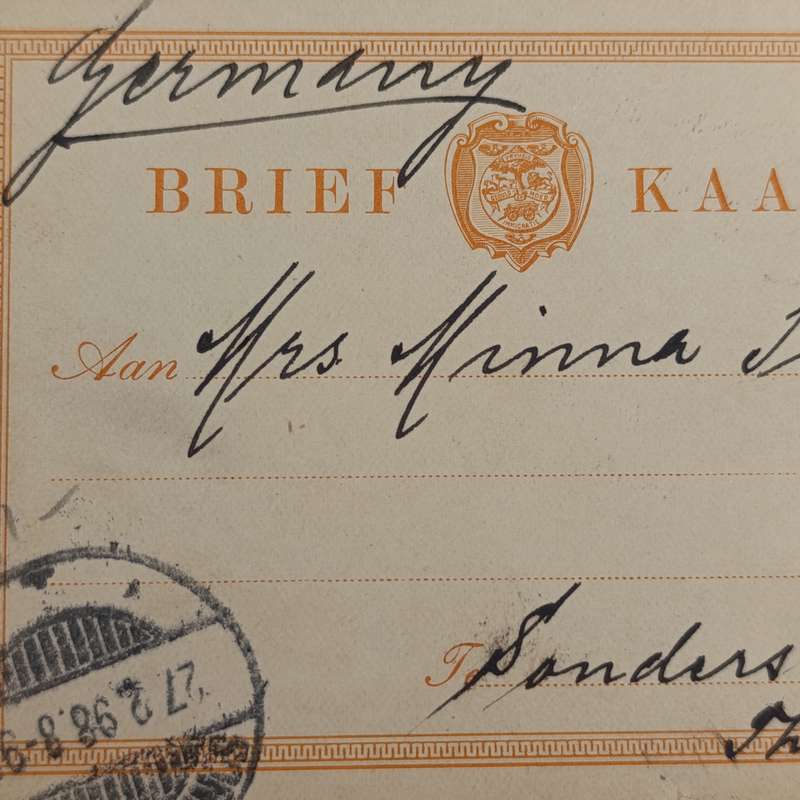 Germany
BRIEF KAA
Aan Mrs. Minna
Te Sonders
Th
27.2.98.8-9